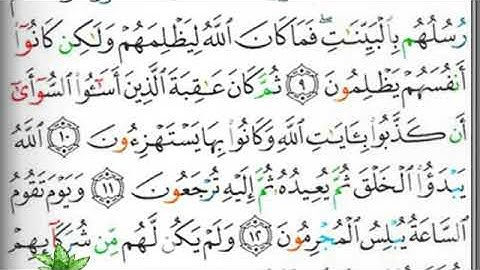 رُسُلُهُم بِالْبَيِّنَـٰتِ ۖ فَمَا كَانَ اللَّهُ لِيَظْلِمَهُمْ وَلَـٰكِن كَانُوٓا۟
أَنفُسَهُمْ يَظْلِمُونَ ٩ ثُمَّ كَانَ عَـٰقِبَةَ الَّذِينَ أَسَـٰٓـُٔوا۟ السُّوٓأَىٰٓ
أَن كَذَّبُوا۟ بِـَٔايَـٰتِ اللَّهِ وَكَانُوا۟ بِهَا يَسْتَهْزِءُونَ ١٠ اللَّهُ
يَبْدَؤُا۟ الْخَلْقَ ثُمَّ يُعِيدُهُۥ ثُمَّ إِلَيْهِ تُرْجَعُونَ ١١ وَيَوْمَ تَقُومُ
السَّاعَةُ يُبْلِسُ الْمُجْرِمُونَ ١٢ وَلَمْ يَكُن لَّهُم مِّن شُرَكَآئِهِمْ